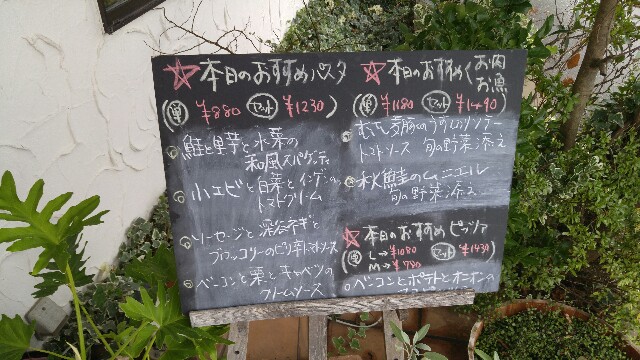 ☆本日のおすすめパスタ
(単 ¥880 セット ¥1230)
鮭と里芋と水菜の
和風スパゲッティ
小エビと白菜と
トマトクリーム
ソーセージと深谷ネギと
ブロッコリーのピリ辛トマトソース
ベーコンと栗とキャベツの
クリームソース
☆本日のおすすめ お肉
お魚
(単 ¥1180 セット ¥1490)
トマトソース 旬の野菜添え
秋鮭のムニエル
旬の野菜添え
☆本日のおすすめピッツァ
(単 L→¥1080 セット ¥1430)
M→¥780
ベーコンとポテトとオニオンの